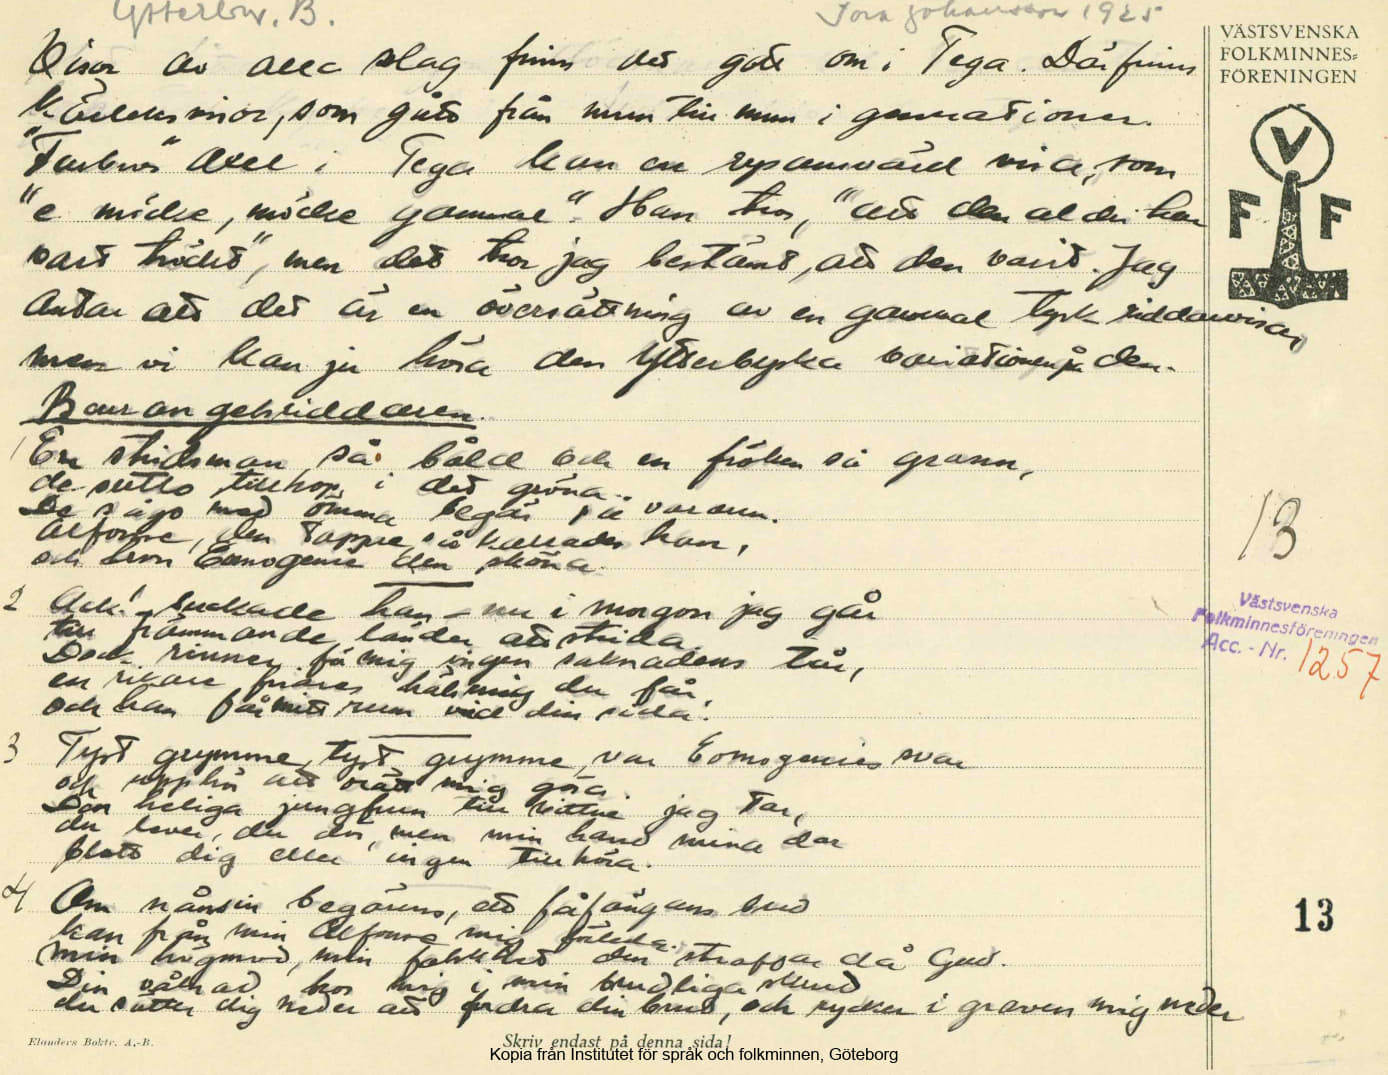 Ytterby, B.
Tora Johansson 1925
VÄSTSVENSKA
FOLKMINNES=
FÖRENINGEN
V
F F
Visor av alla slag finns det gott om i Tega. Där finns
kärleksvisor, som gått från mun till mun i generationer.
Axel i Tega kan en visa, som
"e möcke, möcke gammal". Han tror, "att den aldri han
vart tröckt", men det tror jag bestämt, att den varit. Jag
antar att det är en översättning av en gammal tysk riddarvisan
men vi kan ju höra den Ytterbyska variationen på den.
Barangebriddaren.
1 En stridsman så båld och en fröken så grann,
de sutto tillhop i det gröna.
De sågo med ömma begär på varann.
Alfonse, den tappre så kallades han,
och hon Eomogenie den sköna.
2 Ack! suckade han - nu i morgon jag går
till främmande länder att strida
Dock rinner för mig ingen saknadens tår,
en rikare friares hälsning du får
och han får mitt rum vid din sida!
3 Tyst grymme, tyst grymme, var Eomogenies svar
och upphör att orätt mig göra.
Den heliga jungfrun till vittne jag tar,
du lever, du dör, men min hand mina dar
blott dig eller ingen tillhöra.
4 Om nånsin begärens, ett fåfängans bud
kan från min Alfonse mig
min högmod, min falskhet den straffar då Gud.
Din vålnad hos mig i min brudliga skrud
du sätter dig neder att fordra din brud, och rycker i graven mig neder
13
Västsvenska
Folkminnesföreningen
Acc. - Nr. 1257
13
Elanders Boktr. A.-B.
Skriv endast på denna sida!
Kopia från Institutet för språk och folkminnen, Göteborg